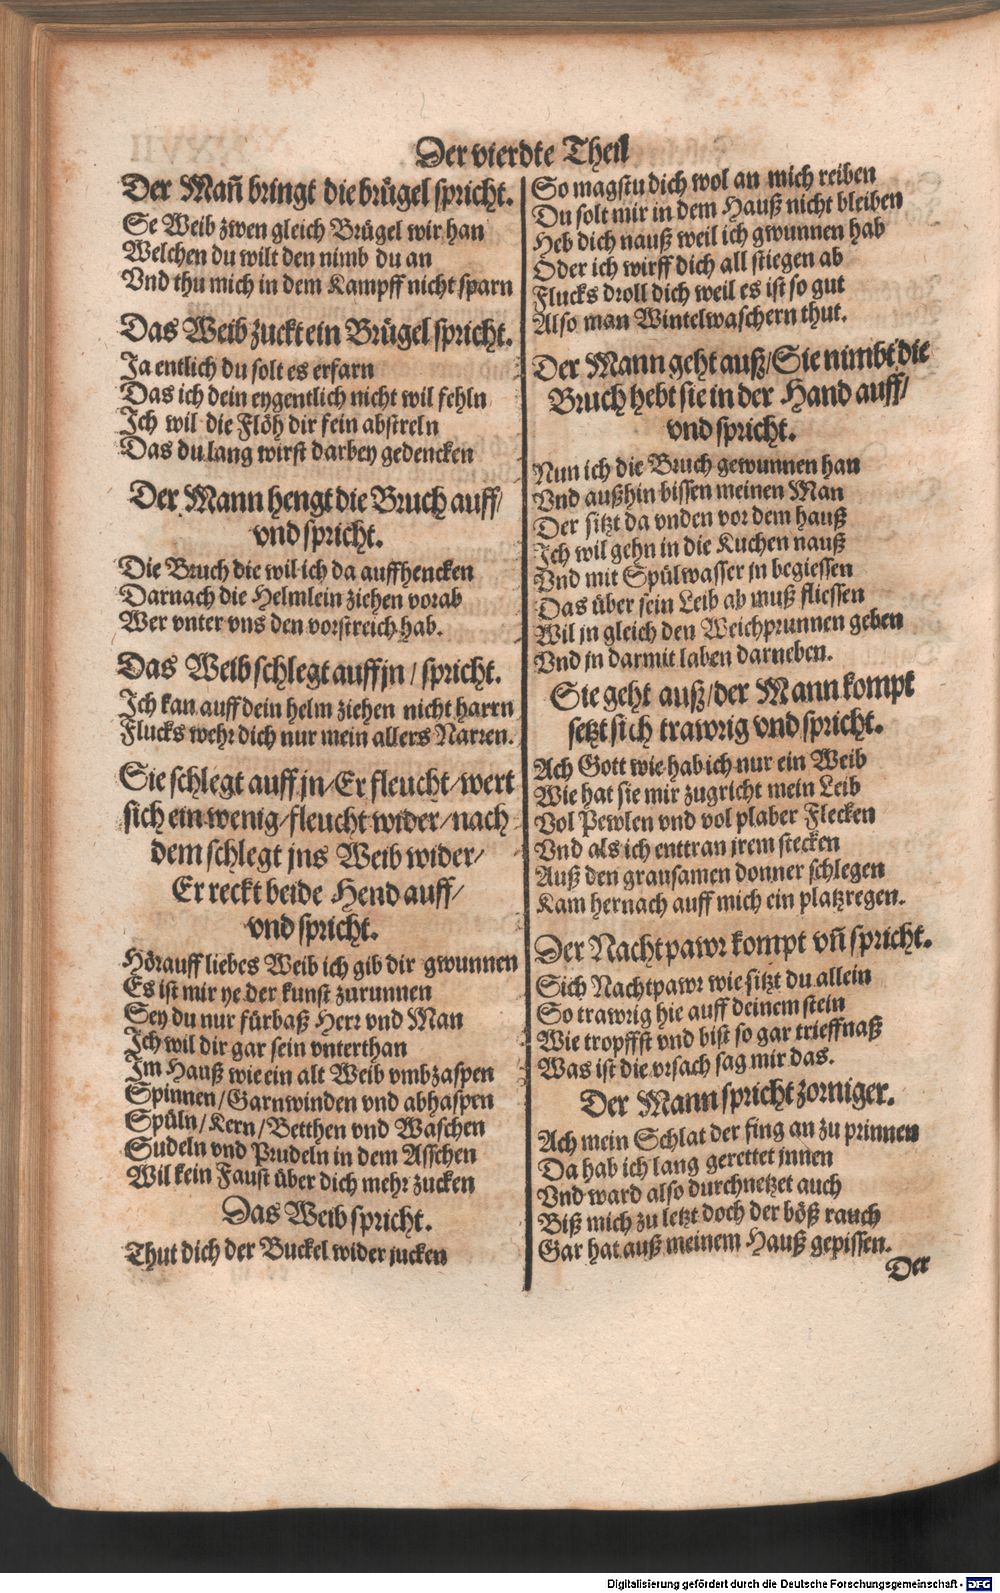 Der vierdte Theil
Der Mañ bringt die brügel spricht.
Se Weib zwen gleich Brügel wir han
Welchen du wilt den nimb du an
Vnd thu mich in dem Kampff nicht sparn
Das Weib zuckt ein Brügel spricht.
Ja entlich du solt es erfarn
Das ich dein eygentlich nicht wil fehln
Ich wil die Flöh dir fein abstreln
Das du lang wirst darbey gedencken
Der Mann hengt die Bruch auff/
vnd spricht.
Die Bruch die wil ich da auffhencken
Darnach die Helmlein ziehen vorab
Wer vnter vns den vorstreich hab.
Das Weib schlegt auff jn / spricht.
Ich kan auff dein helm ziehen nicht harrn
Flucks wehr dich nur mein allers Narren.
Sie schlegt auff jn/Er fleucht/wert
sich ein wenig/fleucht wider/nach
dem schlegt jns Weib wider/
Er reckt beide Hend auff/
vnd spricht.
Hör auff liebes Weib ich gib dir gwunnen
Es ist mir ye der kunst zurunnen
Sey du nur fürbaß Herr vnd Man
Ich wil dir gar sein vnterthan
Im Hauß wie ein alt Weib vmbzaspen
Spinnen/Garnwinden vnd abhaspen
Spüln/Kern/Betthen vnd Waschen
Sudeln vnd Prudeln in dem Asschen
Wil kein Faust über dich mehr zucken
Das Weib spricht.
Thut dich der Buckel wider jucken
So magstu dich wol an mich reiben
Du solt mir in dem Hauß nicht bleiben
Heb dich nauß weil ich gwunnen hab
Oder ich wirff dich all stiegen ab
Flucks droll dich weil es ist so gut
Also man Wintelwaschern thut.
Der Mann geht auß/Sie nimbt die
Bruch hebt sie in der Hand auff/
vnd spricht.
Nun ich die Bruch gewunnen han
Vnd außhin bissen meinen Man
Der sitzt da vnden vor dem hauß
Ich wil gehn in die Kuchen nauß
Vnd mit Spülwasser jn begiessen
Das über sein Leib ab muß fliessen
Wil jn gleich den Weichprunnen geben
Vnd jn darmit laben darneben.
Sie geht auß/der Mann kompt
setzt sich trawrig vnd spricht.
Ach Gott wie hab ich nur ein Weib
Wie hat sie mir zugricht mein Leib
Vol Pewlen vnd vol plaber Flecken
Vnd als ich enttran jrem stecken
Auß den grausamen donner schlegen
Kam hernach auff mich ein platzregen.
Der Nachtpawr kompt vñ spricht.
Sich Nachtpawr wie sitzt du allein
So trawrig hie auff deinem stein
Wie tropffst vnd bist so gar trieffnaß
Was ist die vrsach sag mir das.
Der Mann spricht zorniger.
Ach mein Schlat der fing an zu prinnen
Da hab ich lang gerettet jnnen
Vnd ward also durchnetzet auch
Biß mich zu letzt doch der böß rauch
Gar hat auß meinem Hauß gepissen.
Der
Digitalisierung gefördert durch die Deutsche Forschungsgemeinschaft - DFG